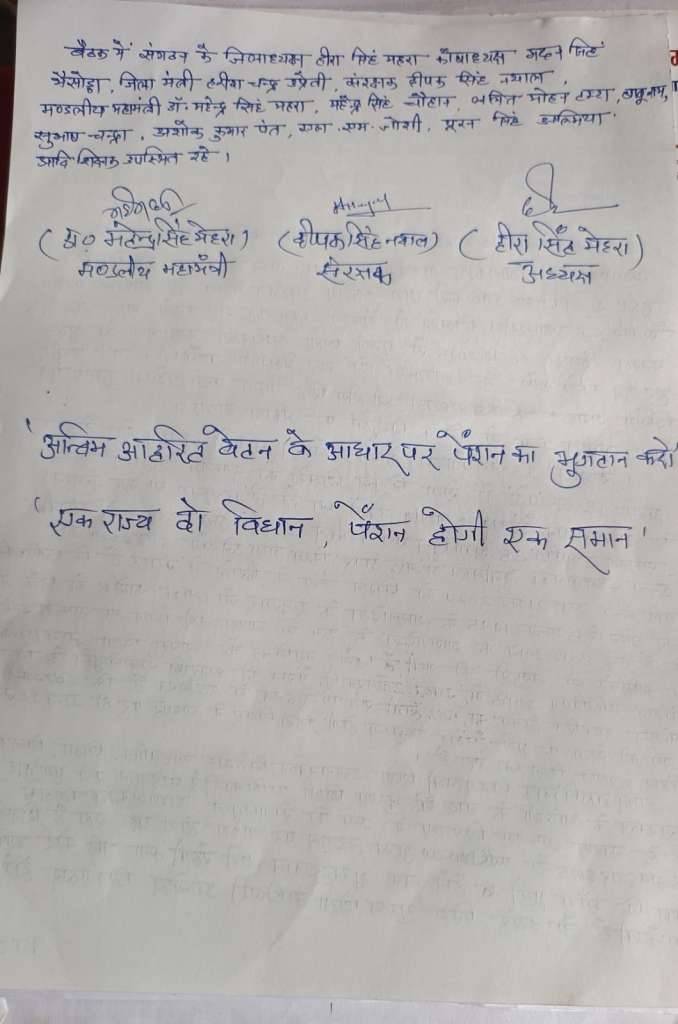 बैठक में संगठन के जिलाध्यक्ष हीरा सिंह महरा कोषाध्यक्ष मदन सिंह
भैसोड़ा, जिला मंत्री हरीश चन्द्र उप्रेती, संरक्षक दीपक सिंह नयाल,
मण्डलीय महामंत्री डॉ. महेन्द्र सिंह महरा, महेन्द्र सिंह चौहान, ललित मोहन
सुभाष चन्द्रा, अशोक कुमार पंत, एस. एम. जोशी, पूरन सिंह
आदि शिक्षक उपस्थित रहे।
(डा० महेन्द्र सिंह मेहरा) (दीपक सिंह नयाल) (हीरा सिंह मेहरा)
मण्डलीय महामंत्री संरक्षक अध्यक्ष
'अन्तिम आहरित वेतन के आधार पर पेंशन का भुगतान करो'
'एक राज्य दो विधान, पेंशन होगी एक समान'